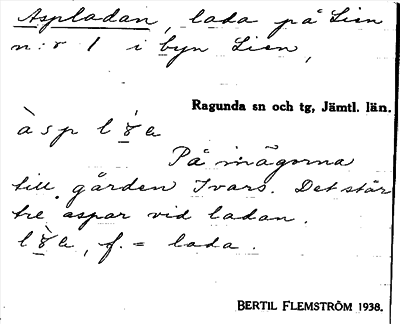 Aspladan, lada på Lien
n:r 1 i byn Lien,
Ragunda sn och tg, Jämtl. län.
På mägorna
till gården Ivars. Det står
tre aspar vid ladan.
f. = lada.
BERTIL FLEMSTRÖM 1938.